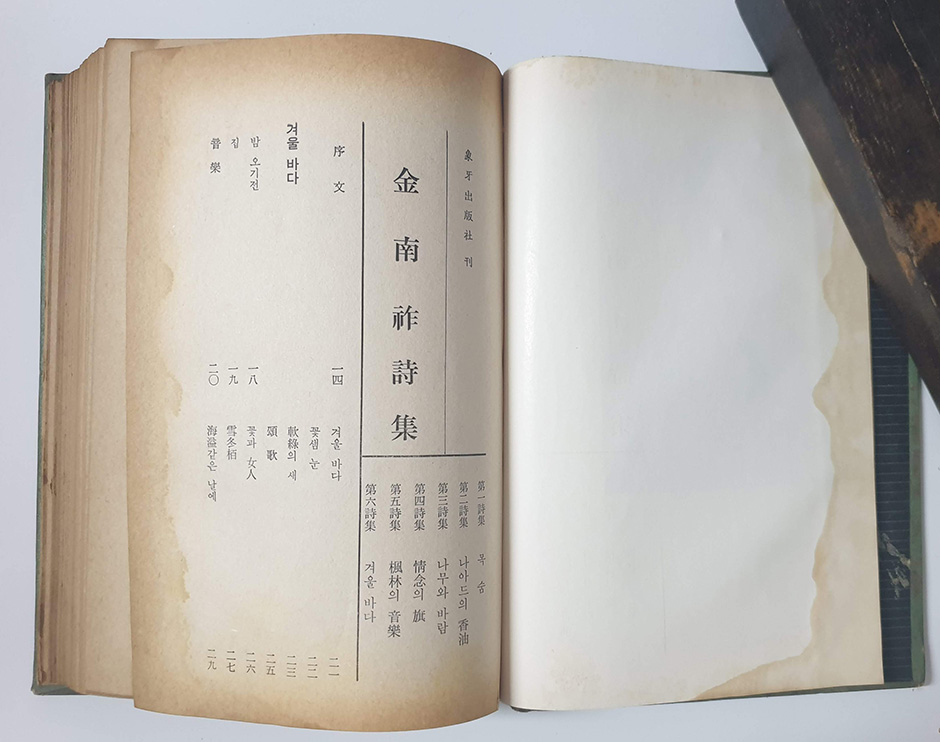 象牙出版社 刊
金南祚詩集
第一詩集 목숨
第二詩集 나아드의 香油
第三詩集 나무와 바람
第四詩集 情念의 旗
第五詩集 楓林의 音樂
第六詩集 겨울 바다
序文 一四
겨울 바다
밤 오기전 一八
집 一九
音樂 二〇
겨울 바다 二一
꽃샘 눈 二二
軟綠의 새 二三
頌歌 二五
꽃과 女人 二六
雪冬栢 二七
海溢같은 날에 二九